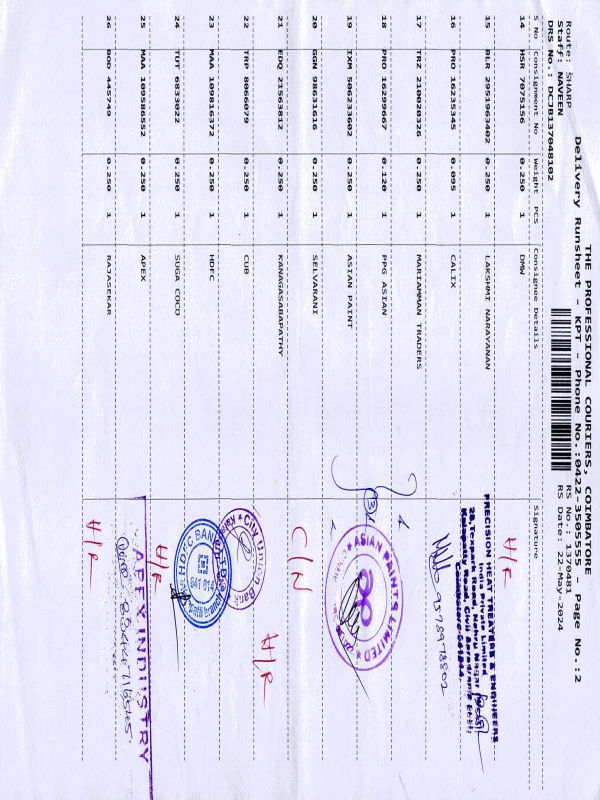 THE PROFESSIONAL COURIERS, COIMBATORE
Delivery Runsheet - KPT - Phone No.:0422-3505555 - Page No.:2
Route: SHARP
Staff: NAVEEN
DRS No.: DCJB137048102
RS No.: 1370481
RS Date: 22-May-2024
S No Consignment No Weight PCS Consignee Details Signature
14 HSR 7075156 0.250 1 DMW H/R
15 BLR 2951963402 0.250 1 LAKSHMI NARAYANAN
PRECISION HEAT TREATERS & ENGINEERS
India Private Limited
28, Texpark Road, Nehru Nagar
16 PRO 16235345 0.095 1 CALIX
9578978802
17 TRZ 210020326 0.250 1 MARIAMMAN TRADERS
18 PRO 16299667 0.120 1 PPG ASIAN
19 IXM 506233602 0.250 1 ASIAN PAINT
ASIAN PAINTS LIMITED
20 GGN 98631616 0.250 1 SELVARANI
21 EDQ 21563812 0.250 1 KANAGASABAPATHY C/N
22 TRP 8066079 0.250 1 CUB H/R
City Union Bank
23 MAA 109816372 0.250 1 HDFC
HDFC BANK LTD
641 014
24 TUT 6833022 0.250 1 SUGA COCO H/R
25 MAA 109586552 0.250 1 APEX
APEX INDUSTRY
26 BOO 445749 0.250 1 RAJASEKAR H/R